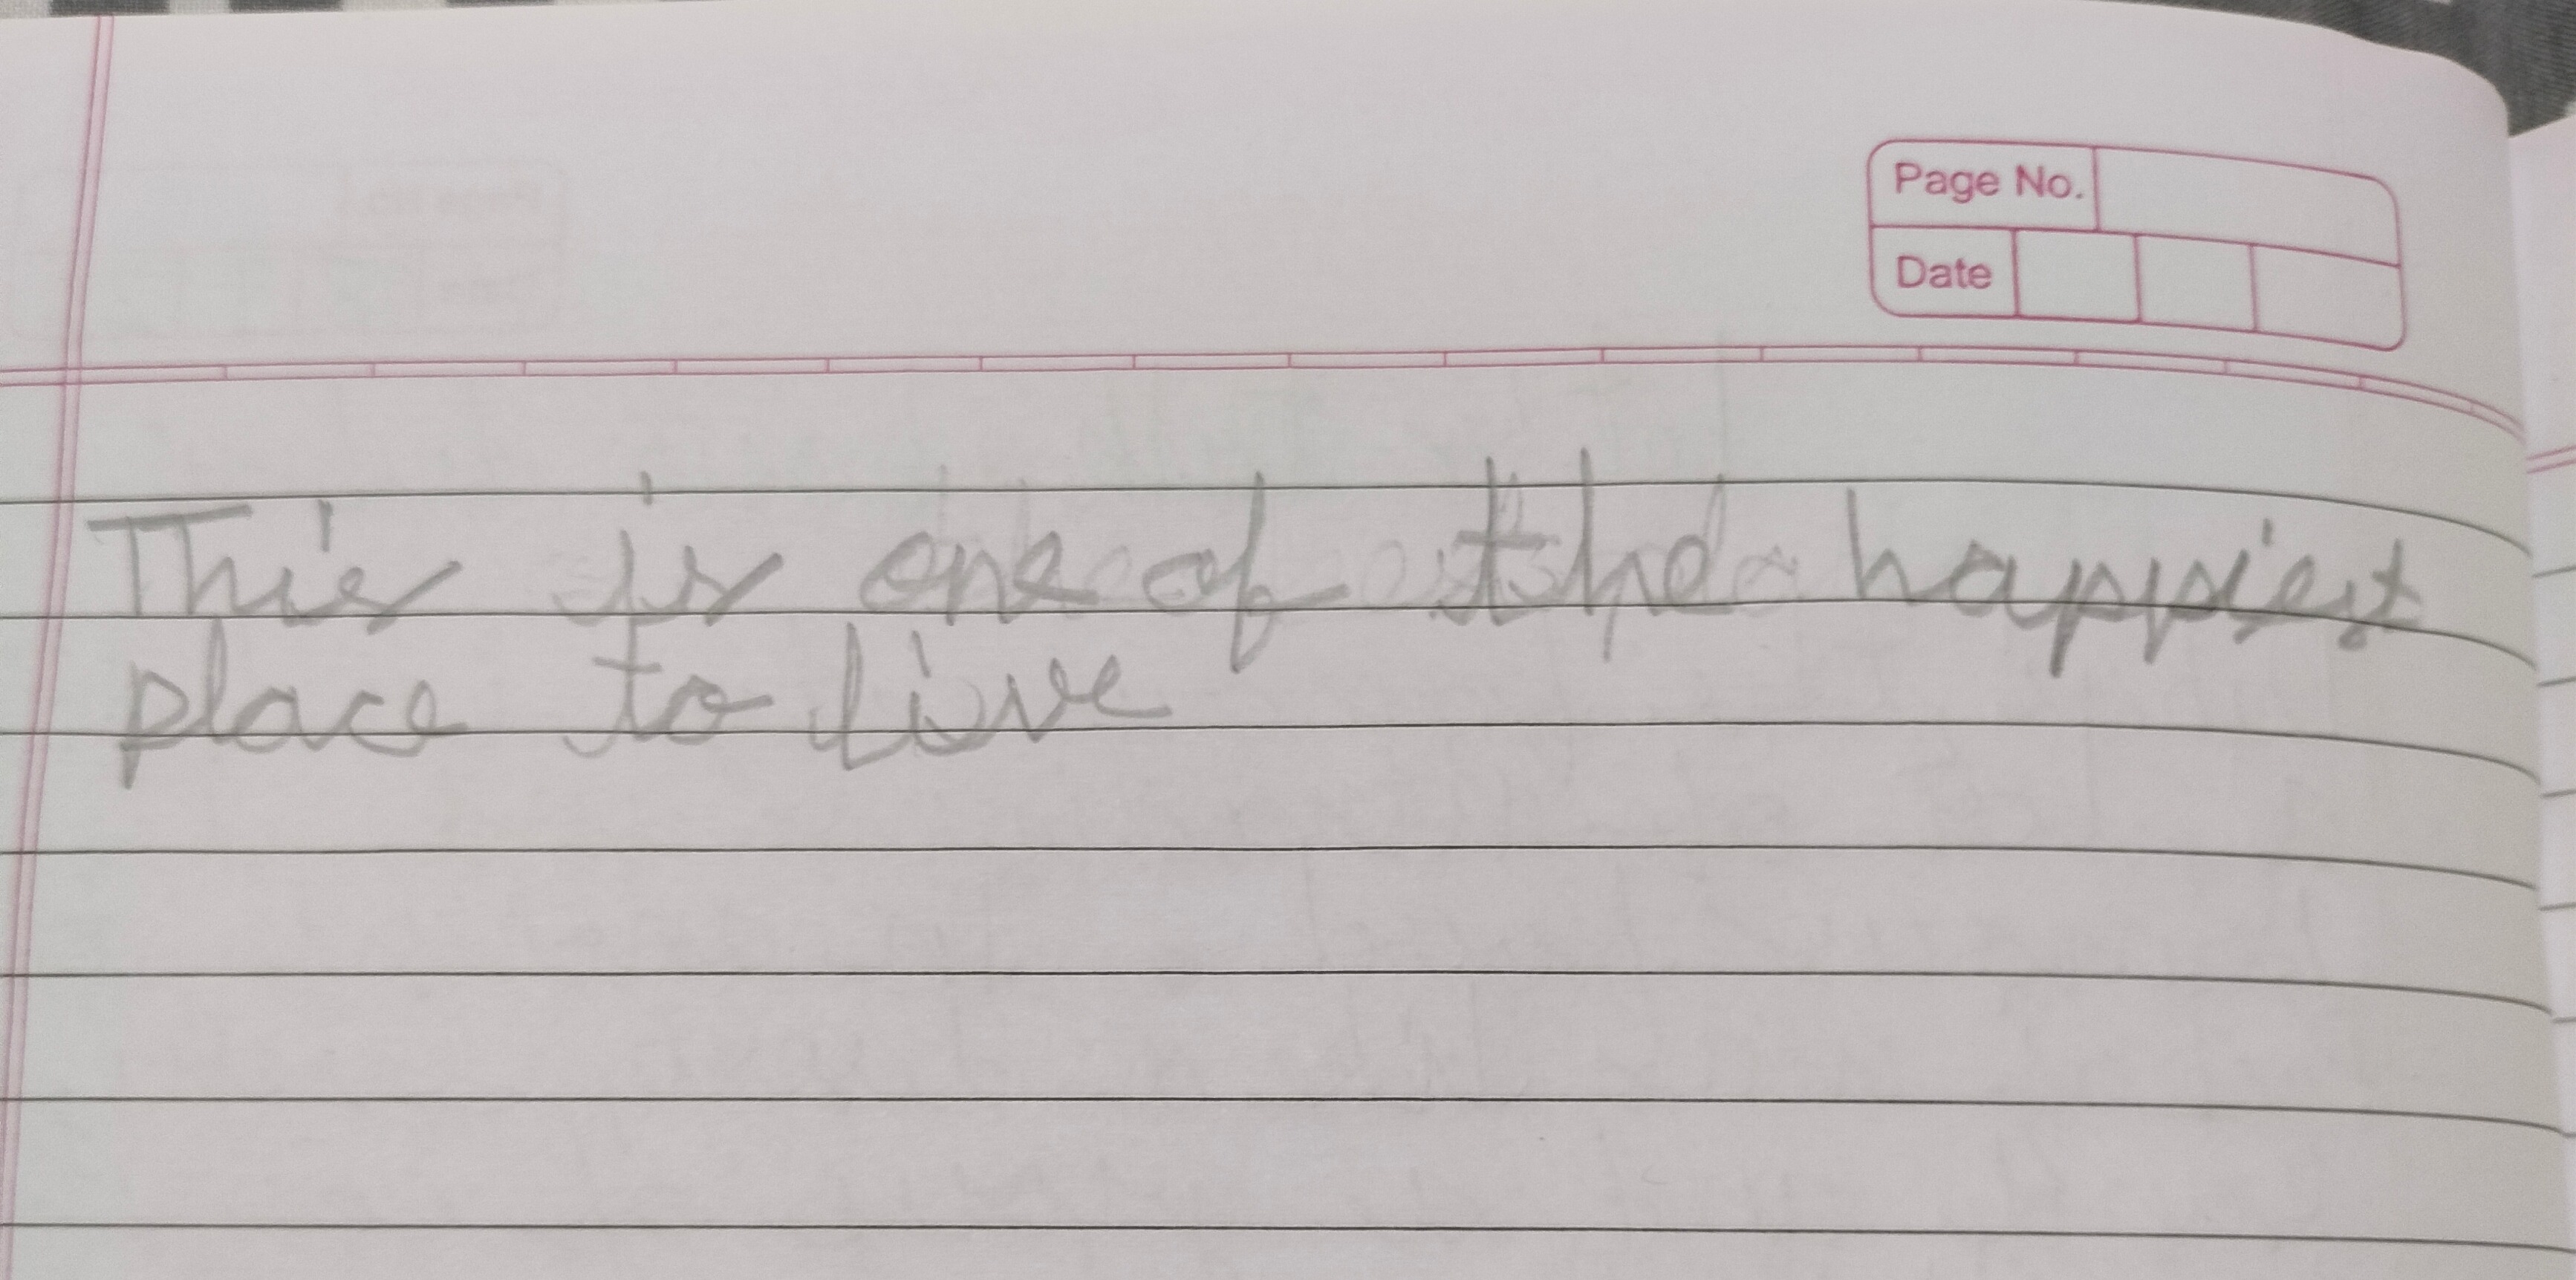 Page No.
Date
This is one of the happiest
place to live